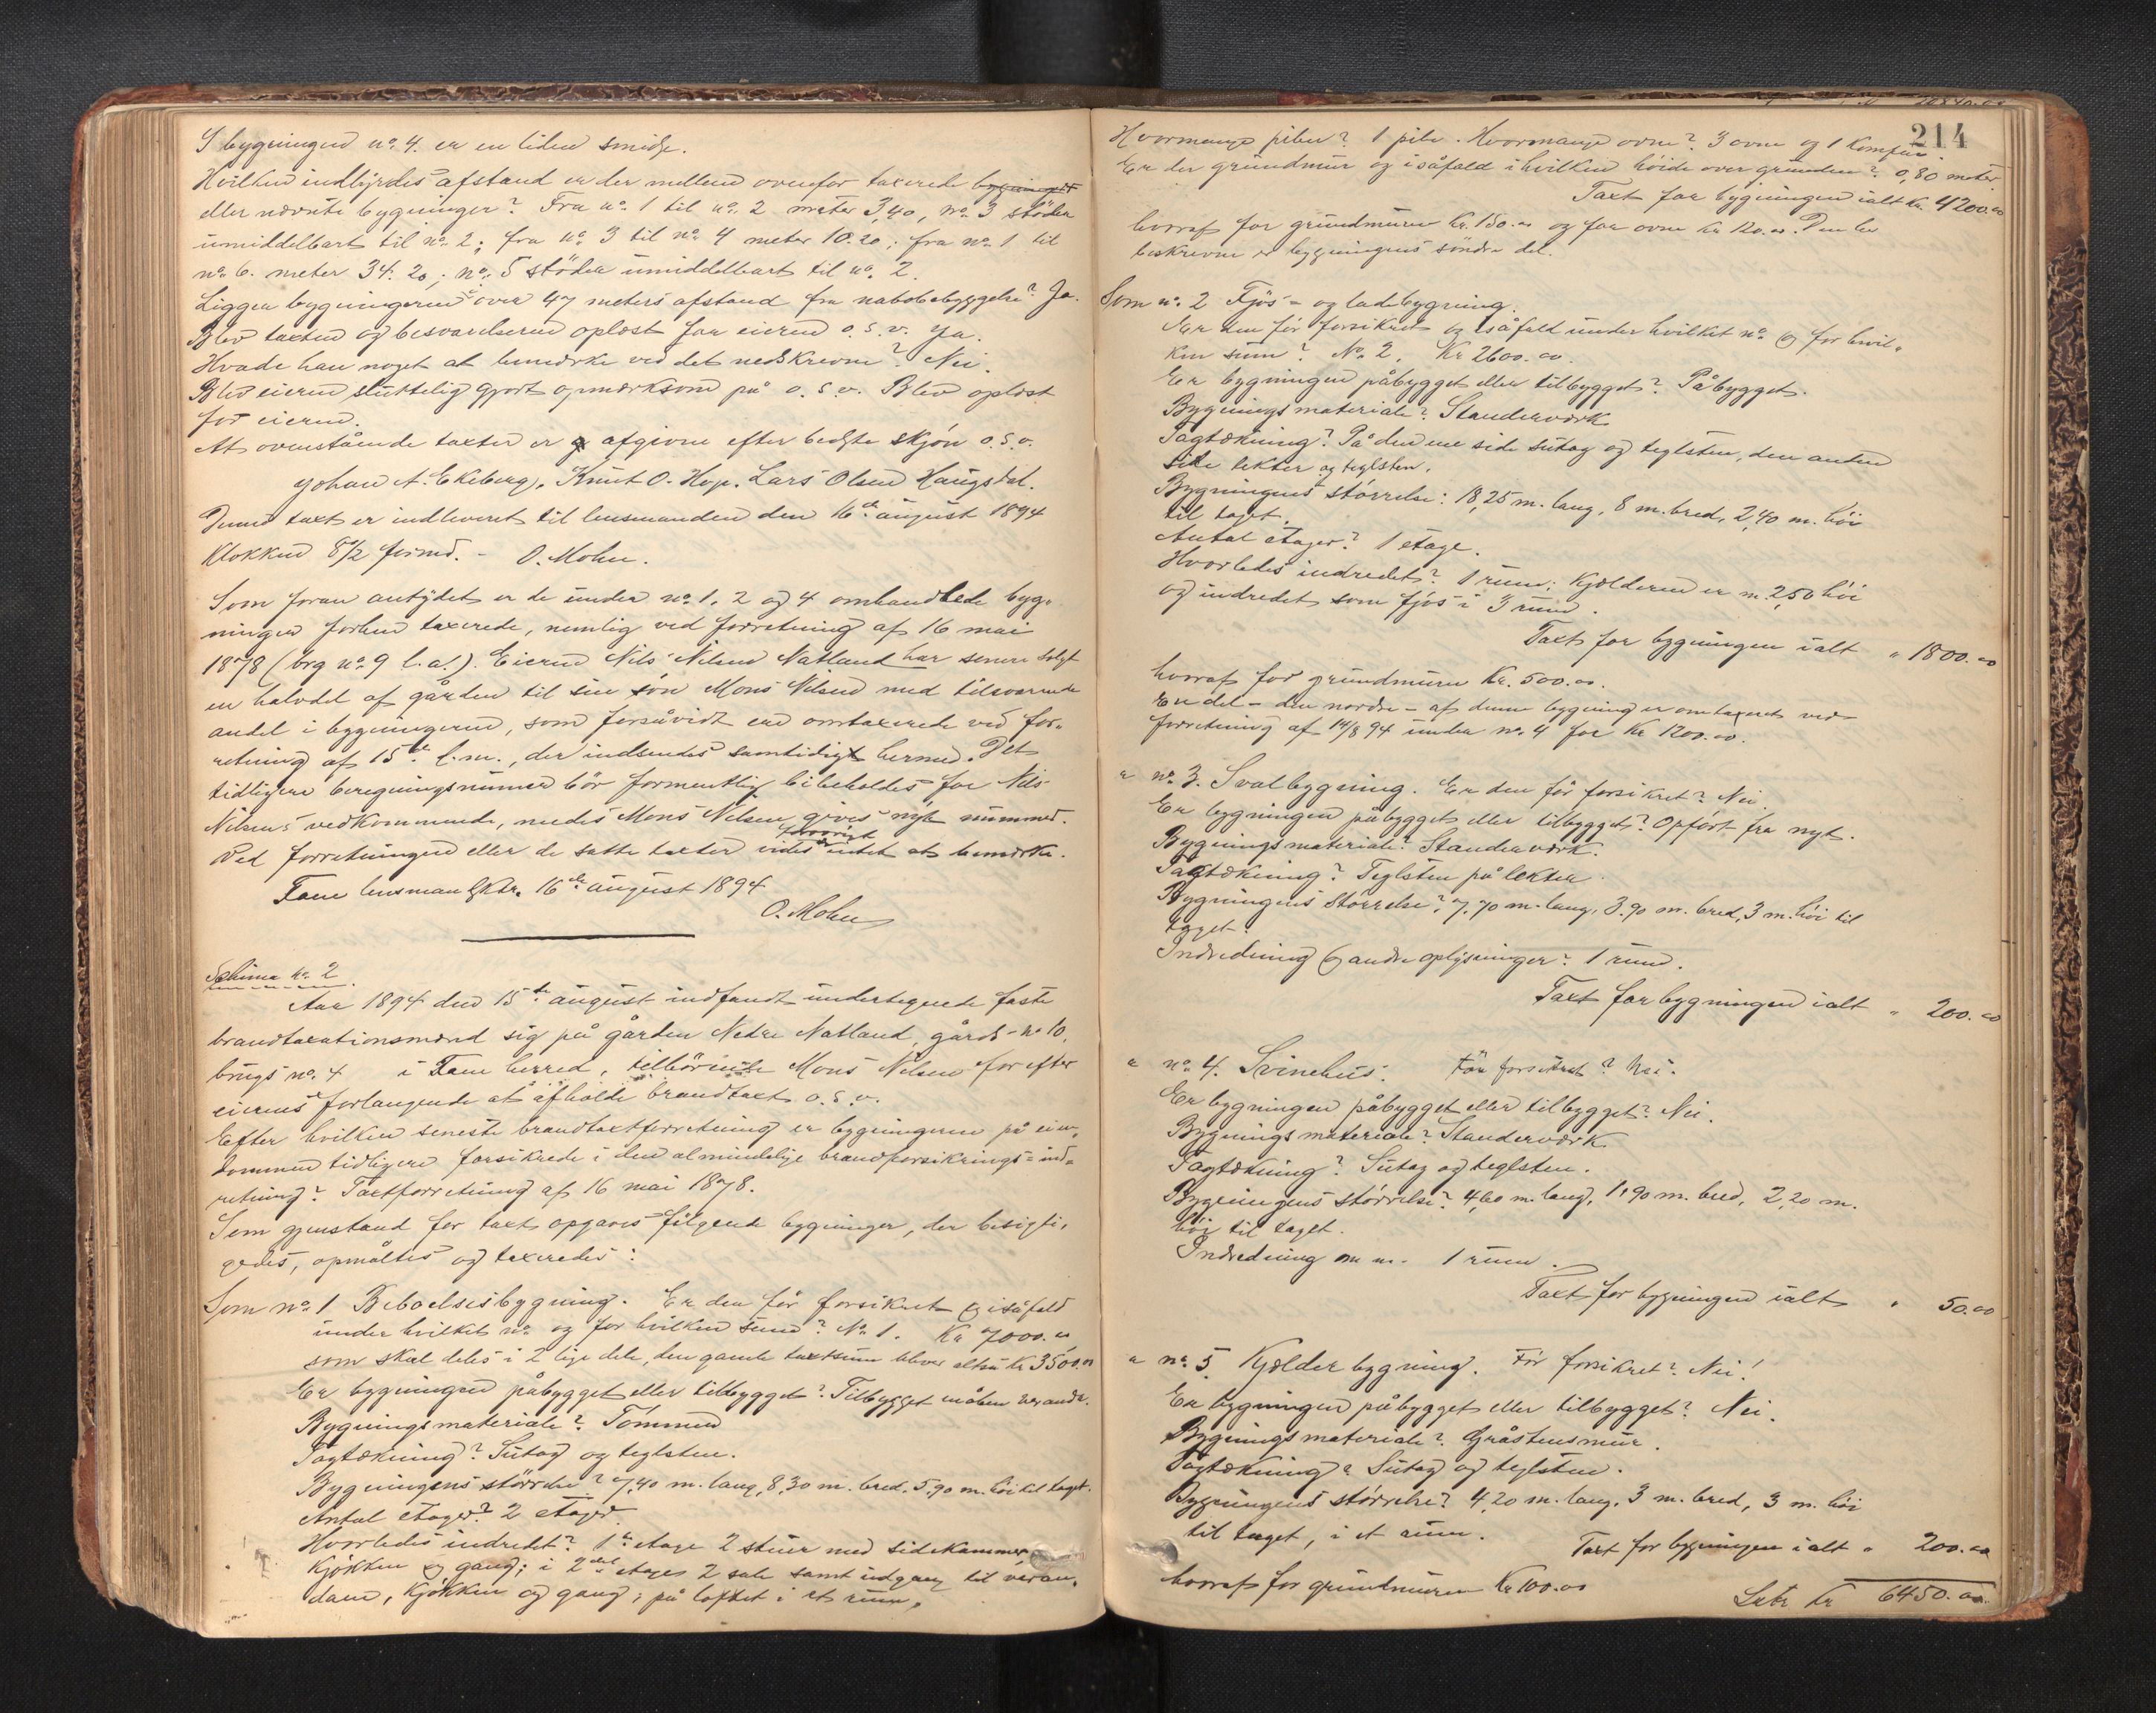 I bygningen no. 4. er en liden smidje.
Hvilken indbyrdes afstand er der mellem ovenfor taxerede bygninger
eller nævnte bygninger? Fra no. 1 til no. 2 meter 3,40, no. 3 støder
umiddelbart til no. 2; fra no. 3 til no. 4 meter 10.20; fra no. 1 til
no. 6. meter 34.20; no. 5 støder umiddelbart til no. 2.
Ligger bygningerne over 47 meters afstand fra nabobebyggelse? Ja.
Blev taxten og besvarelserne oplæst for eieren o.s.v. Ja.
Havde han noget at bemærke ved det nedskrevne? Nei.
Blev eieren sluttelig gjort opmærksom på o.s.v. Blev oplæst
for eieren.
At ovenstående taxter er afgivne efter bedste skjøn o.s.v.
Johan A. Ekeberg. Knut O. Hop. Lars Olsen Haugsdal.
Denne taxt er indleveret til lensmanden den 16de august 1894
Klokken 8 1/2 formd. - O. Mohn.
Som foran antydet er de under no. 1, 2 og 4 omhandlede byg-
ninger forhen taxerede, nemlig ved forretning af 16 mai
1878 (brg no. 9 l.a.). Eieren Nils Nilsen Natland har senere solgt
en halvdel af gården til sin søn Mons Nilsen med tilsvarende
andel i bygningerne, som forsåvidt ere omtaxerede ved for-
retning af 15de f.m., der indsendes samtidigt hermed. Det
tidligere beregningsnummer bør formentlig bibeholdes for Nils
Nilsens vedkommende, medens Mons Nilsen gives nyt nummer.
Ved forretningen eller de satte taxter vides forøvrigt intet at bemærke.
Fane lensmandsktr. 16de august 1894
O. Mohn
Schema no. 2.
Aar 1894 den 15de august indfandt undertegnede faste
brandtaxationsmænd sig på gården Nedre Natland, gårds-no. 10,
brugs no. 4 i Fane herred, tilhørende Mons Nilsen for efter
eierens forlangende at afholde brandtaxt o.s.v.
Efter hvilken seneste brandtaxtforretning er bygningerne på eien-
dommen tidligere forsikrede i den almindelige brandforsikrings-ind-
retning? Taxtforretning af 16 mai 1878.
Som gjenstand for taxt opgaves følgende bygninger, der besigti-
gedes, opmåltes og taxeredes:
Som no. 1 Beboelsesbygning. Er den før forsikret og isåfald
under hvilket no. og for hvilken sum? No. 1. Kr 7000.00
som skal deles i 2 lige dele, den gamle taxtsum bliver altså Kr 3500.00
Er bygningen påbygget eller tilbygget? Tilbygget en åben veranda.
Bygningsmateriale? Tømmer
Tagtækning? Sutag og teglsten.
Bygningens størrelse? 7,40 m. lang, 8,30 m. bred, 5,90 m. høi til taget.
Antal etager? 2 etager.
Hvorledes indredet? 1ste etage 2 stuer med sidekammer,
Kjøkken og gang; i 2den etages 2 sale samt udgang til veran-
daen, Kjøkken og gang; på loftet i et rum.
214
Hvormange piber? 1 pibe. Hvormange ovne? 3 ovne og 1 Komfur.
Er der grundmur og isåfald i hvilken høide over grunden? 0,80 meter
Taxt for bygningen ialt Kr. 4200.00
hvoraf for grundmuren Kr. 150.00 og for ovne Kr 120.00. Den her
beskrevne er bygningens søndre del.
Som no. 2 Fjøs- og ladebygning.
Er den før forsikret og isåfald under hvilket no. og for hvil-
ken sum? No. 2. Kr 2600.00.
Er bygningen påbygget eller tilbygget? Påbygget.
Bygningsmateriale? Standerværk
Tagtækning? På den ene side sutag og teglsten, den anden
side lekter og teglsten.
Bygningens størrelse: 18,25 m. lang, 8 m. bred, 2,40 m. høi
til taget.
Antal etager? 1 etage.
Hvorledes indredet? 1 rum; Kjælderen er m. 2,50 høi
og indredet som fjøs i 3 rum.
Taxt for bygningen ialt " 1800.00
hvoraf for grundmuren Kr. 500.00.
En del - den nordre - af denne bygning er omtaxeret ved
forretning af 14/8 94 under no. 4 for Kr 1200.00.
" no. 3. Svalbygning. Er den før forsikret? Nei.
Er bygningen påbygget eller tilbygget? Opført fra nyt.
Bygningsmateriale? Standerværk.
Tagtækning? Teglsten på lekter.
Bygningens størrelse? 7,70 m. lang, 3.90 m. bred, 3 m. høi til
taget.
Indredning og andre oplysninger? 1 rum.
Taxt for bygningen ialt " 200.00
" no. 4. Svinehus. Før forsikret? Nei.
Er bygningen påbygget eller tilbygget? Nei.
Bygningsmateriale? Standerværk
Tagtækning? Sutag og teglsten.
Bygningens størrelse? 4,60 m. lang, 1,90 m. bred, 2,20 m.
høi til taget.
Indredning m. m. 1 rum.
Taxt for bygningen ialt " 50.00
" no. 5 Kjælderbygning. Før forsikret? Nei!
Er bygningen påbygget eller tilbygget? Nei.
Bygningsmateriale? Gråstensmur.
Tagtækning? Sutag og teglsten.
Bygningens størrelse? 4,20 m. lang, 3 m. bred, 3 m. høi
til taget, i et rum.
Taxt for bygningen ialt " 200.00
hvoraf for grundmuren Kr 100.00
Latr. Kr 6450.00.